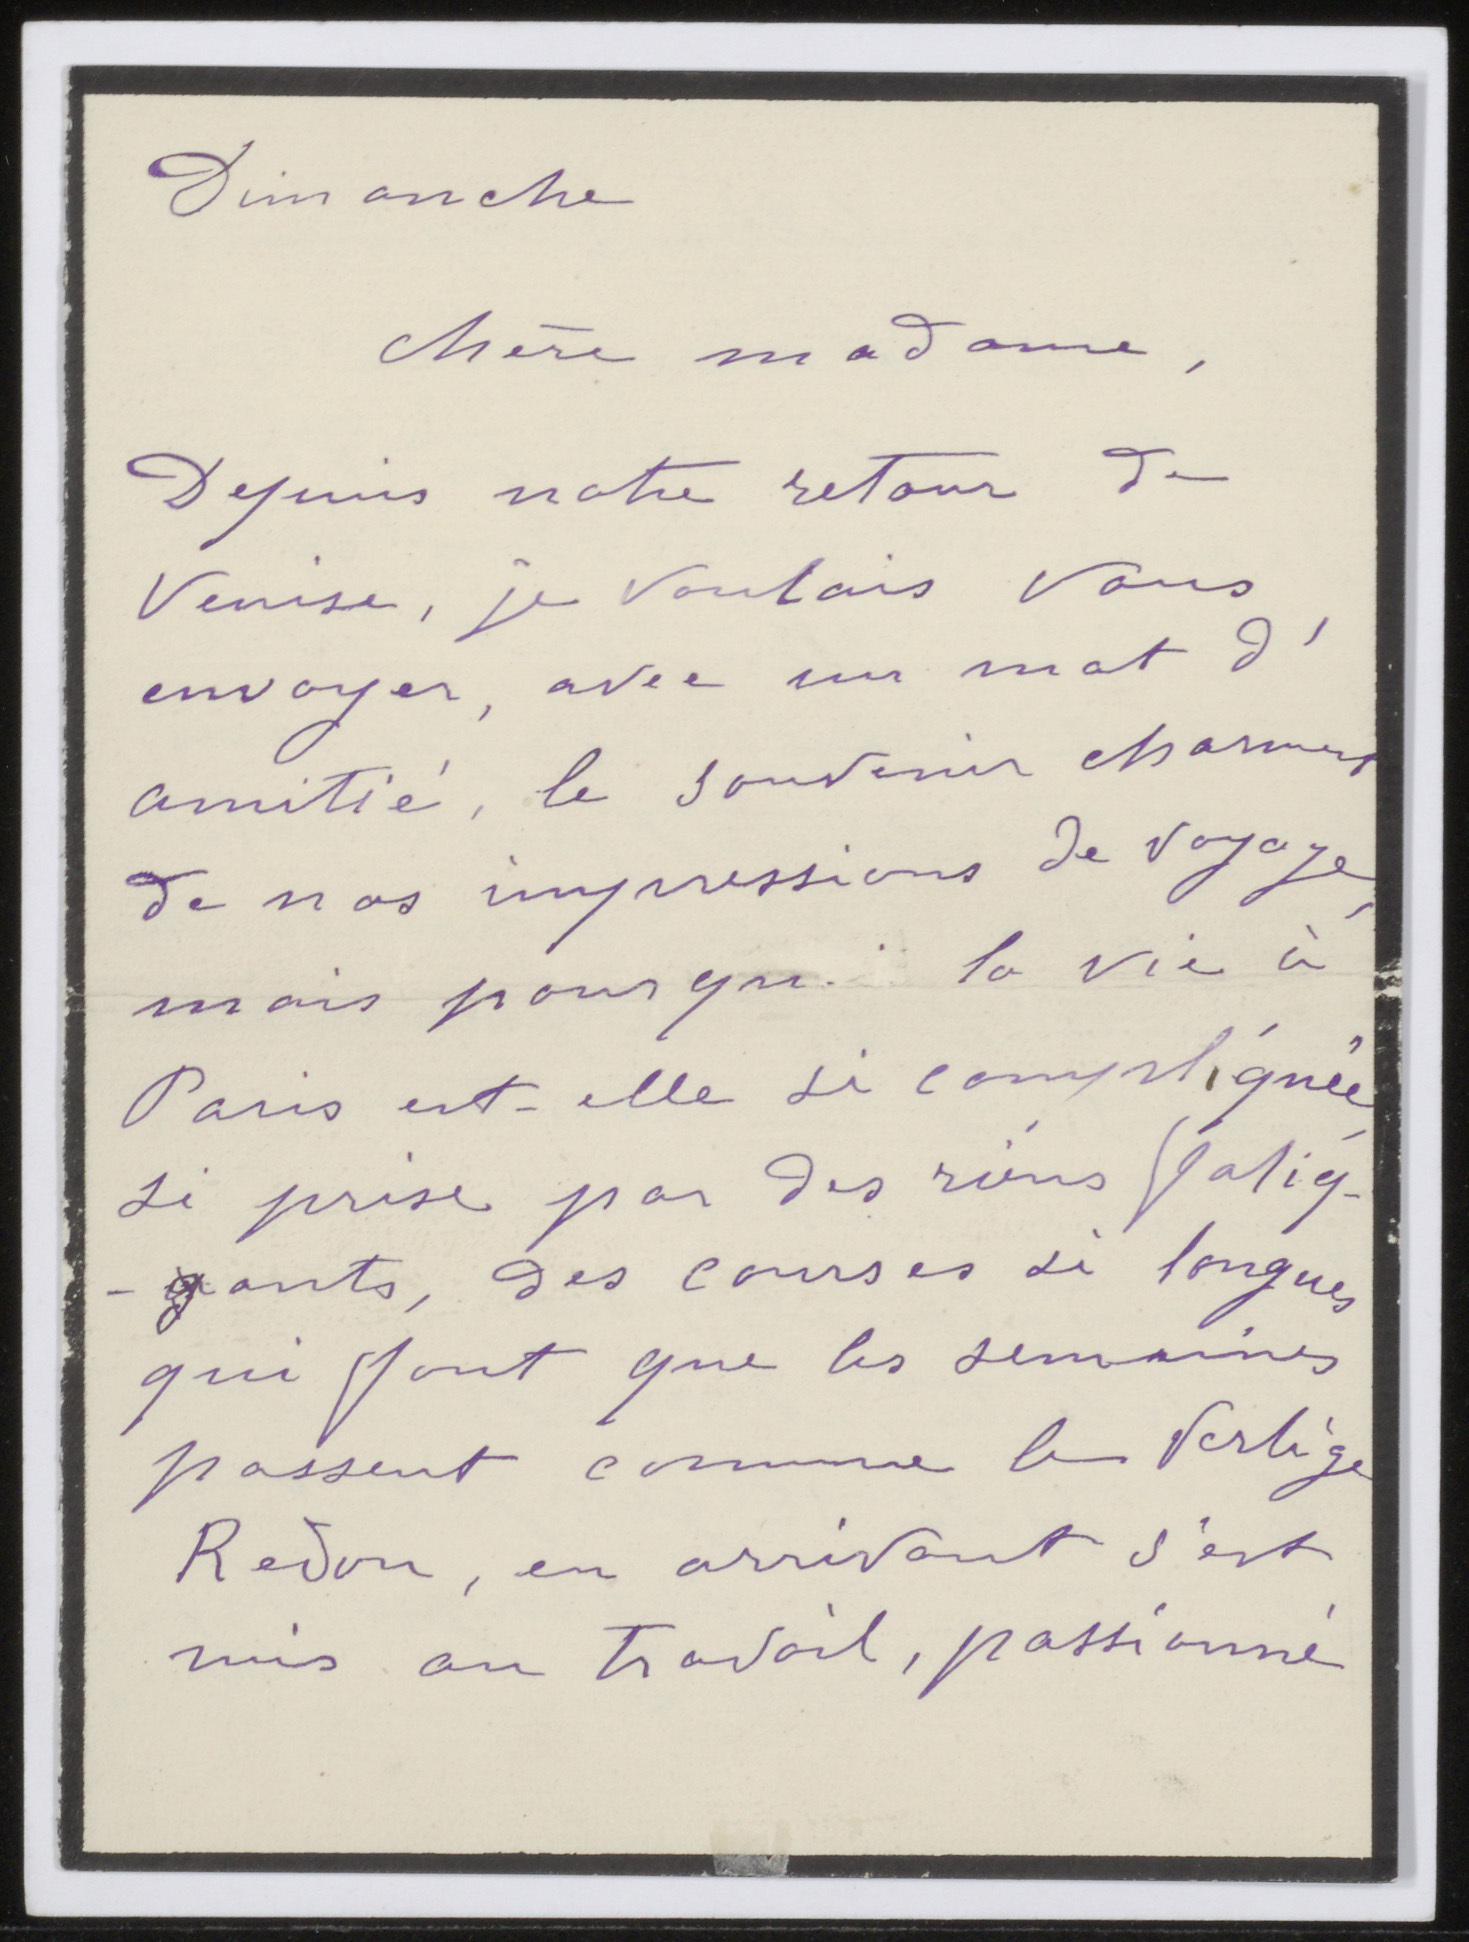 Dimanche
chère madame,
Depuis notre retour de
Venise, je voulais vous
envoyer, avec un mot d'
amitié, le souvenir charmant
de nos impressions de voyage,
mais pourquoi la vie à
Paris est-elle si compliquée
si prise par des riens fatig-
-ants, des courses si longues
qui font que les semaines
passent comme le vertige
Redon, en arrivant s'est
mis au travail, passionné